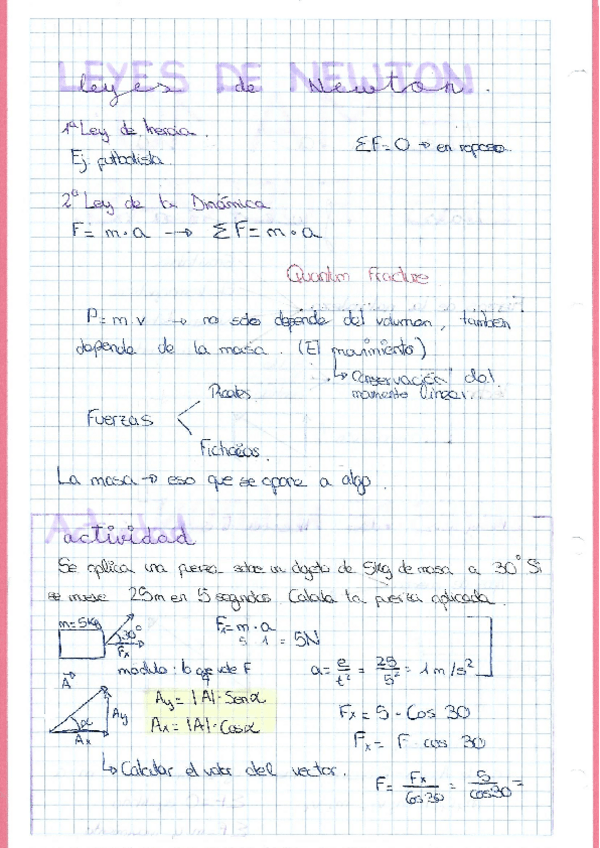 LEYES DE NEWTON
leyes de Newton.
1ª Ley de Inercia.
ΣF=0 → en reposo.
Ej. futbolista.
2ª Ley de la Dinámica
F= m·a → ΣF= m·a
Quantum Fracture
P= m v → no solo depende del volumen, también
depende de la masa. (El movimiento)
↳ Conservación del
momento lineal.
Reales
Fuerzas
Ficticias.
La masa → eso que se opone a algo.
actividad
Se aplica una fuerza sobre un objeto de 5kg de masa a 30° Si
se mueve 25m en 5 segundos. Calcula la fuerza aplicada.
m=5kg
30°
Fx
Fx= m·a
5 1 = 5N
módulo: lo que vale F
a= e/t² = 25/5² = 1m/s²
A
α
Ay
Ax
Ay= |A|·Senα
Ax= |A|·Cosα
Fx= 5 - Cos 30
Fx= F cos 30
↳ Calcular el valor del vector.
F= Fx/Cos30 = 5/cos30 =